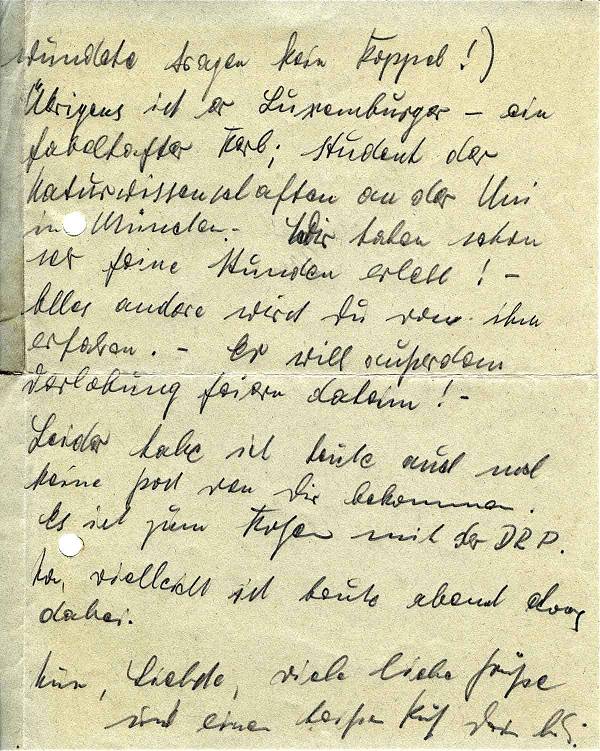 wundete tragen kein Koppel!)
Übrigens ist er Luxemburger – ein
fabelhafter Kerl; Student der
Naturwissenschaften an der Uni
in München. – Wir haben schon
seine Stunden erlebt! –
Alles andere wirst Du von ihm
erfahren. – Er will außerdem
Verlobung feiern daheim! –
Leider habe ich heute auch noch
keine Post von Dir bekommen.
Es ist zum Kotzen mit der DRP.
Na, vielleicht ist heute abend etwas
dabei.
Nun, Liebste, viele liebe Grüße
und einen heißen Kuß Dein